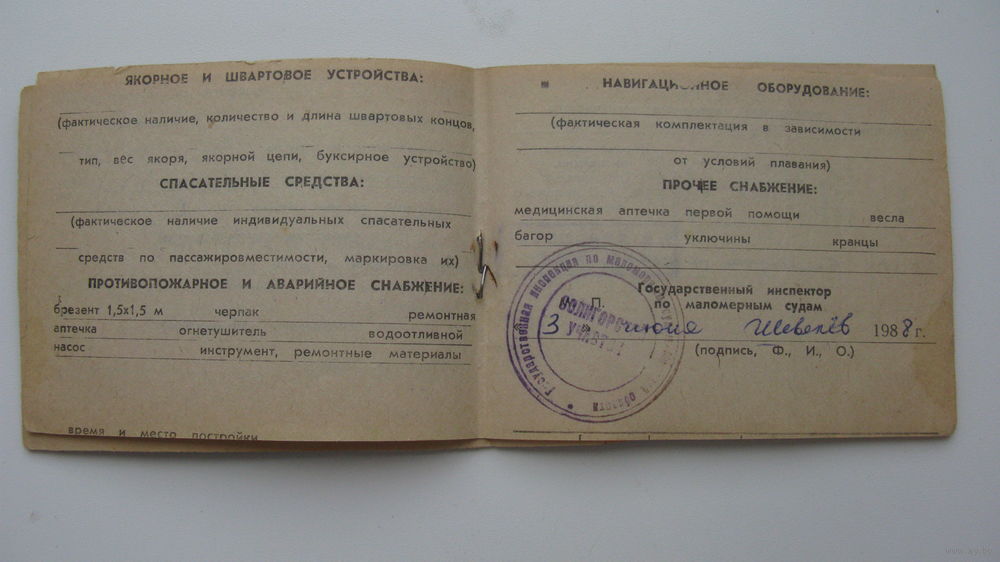 ЯКОРНОЕ И ШВАРТОВОЕ УСТРОЙСТВА:
(фактическое наличие, количество и длина швартовых концов,
тип, вес якоря, якорной цепи, буксирное устройство)
СПАСАТЕЛЬНЫЕ СРЕДСТВА:
(фактическое наличие индивидуальных спасательных
средств по пассажировместимости, маркировка их)
ПРОТИВОПОЖАРНОЕ И АВАРИЙНОЕ СНАБЖЕНИЕ:
брезент 1,5х1,5 м черпак ремонтная
аптечка огнетушитель водоотливной
насос инструмент, ремонтные материалы
время и место постройки
НАВИГАЦИОННОЕ ОБОРУДОВАНИЕ:
(фактическая комплектация в зависимости
от условий плавания)
ПРОЧЕЕ СНАБЖЕНИЕ:
медицинская аптечка первой помощи весла
багор уключины кранцы
Государственный инспектор
П. по маломерным судам
3 июня Шевелёв 1988 г.
(подпись, Ф., И., О.)
Государственная инспекция по маломерным
области
УЧАСТОК
www.ay.by